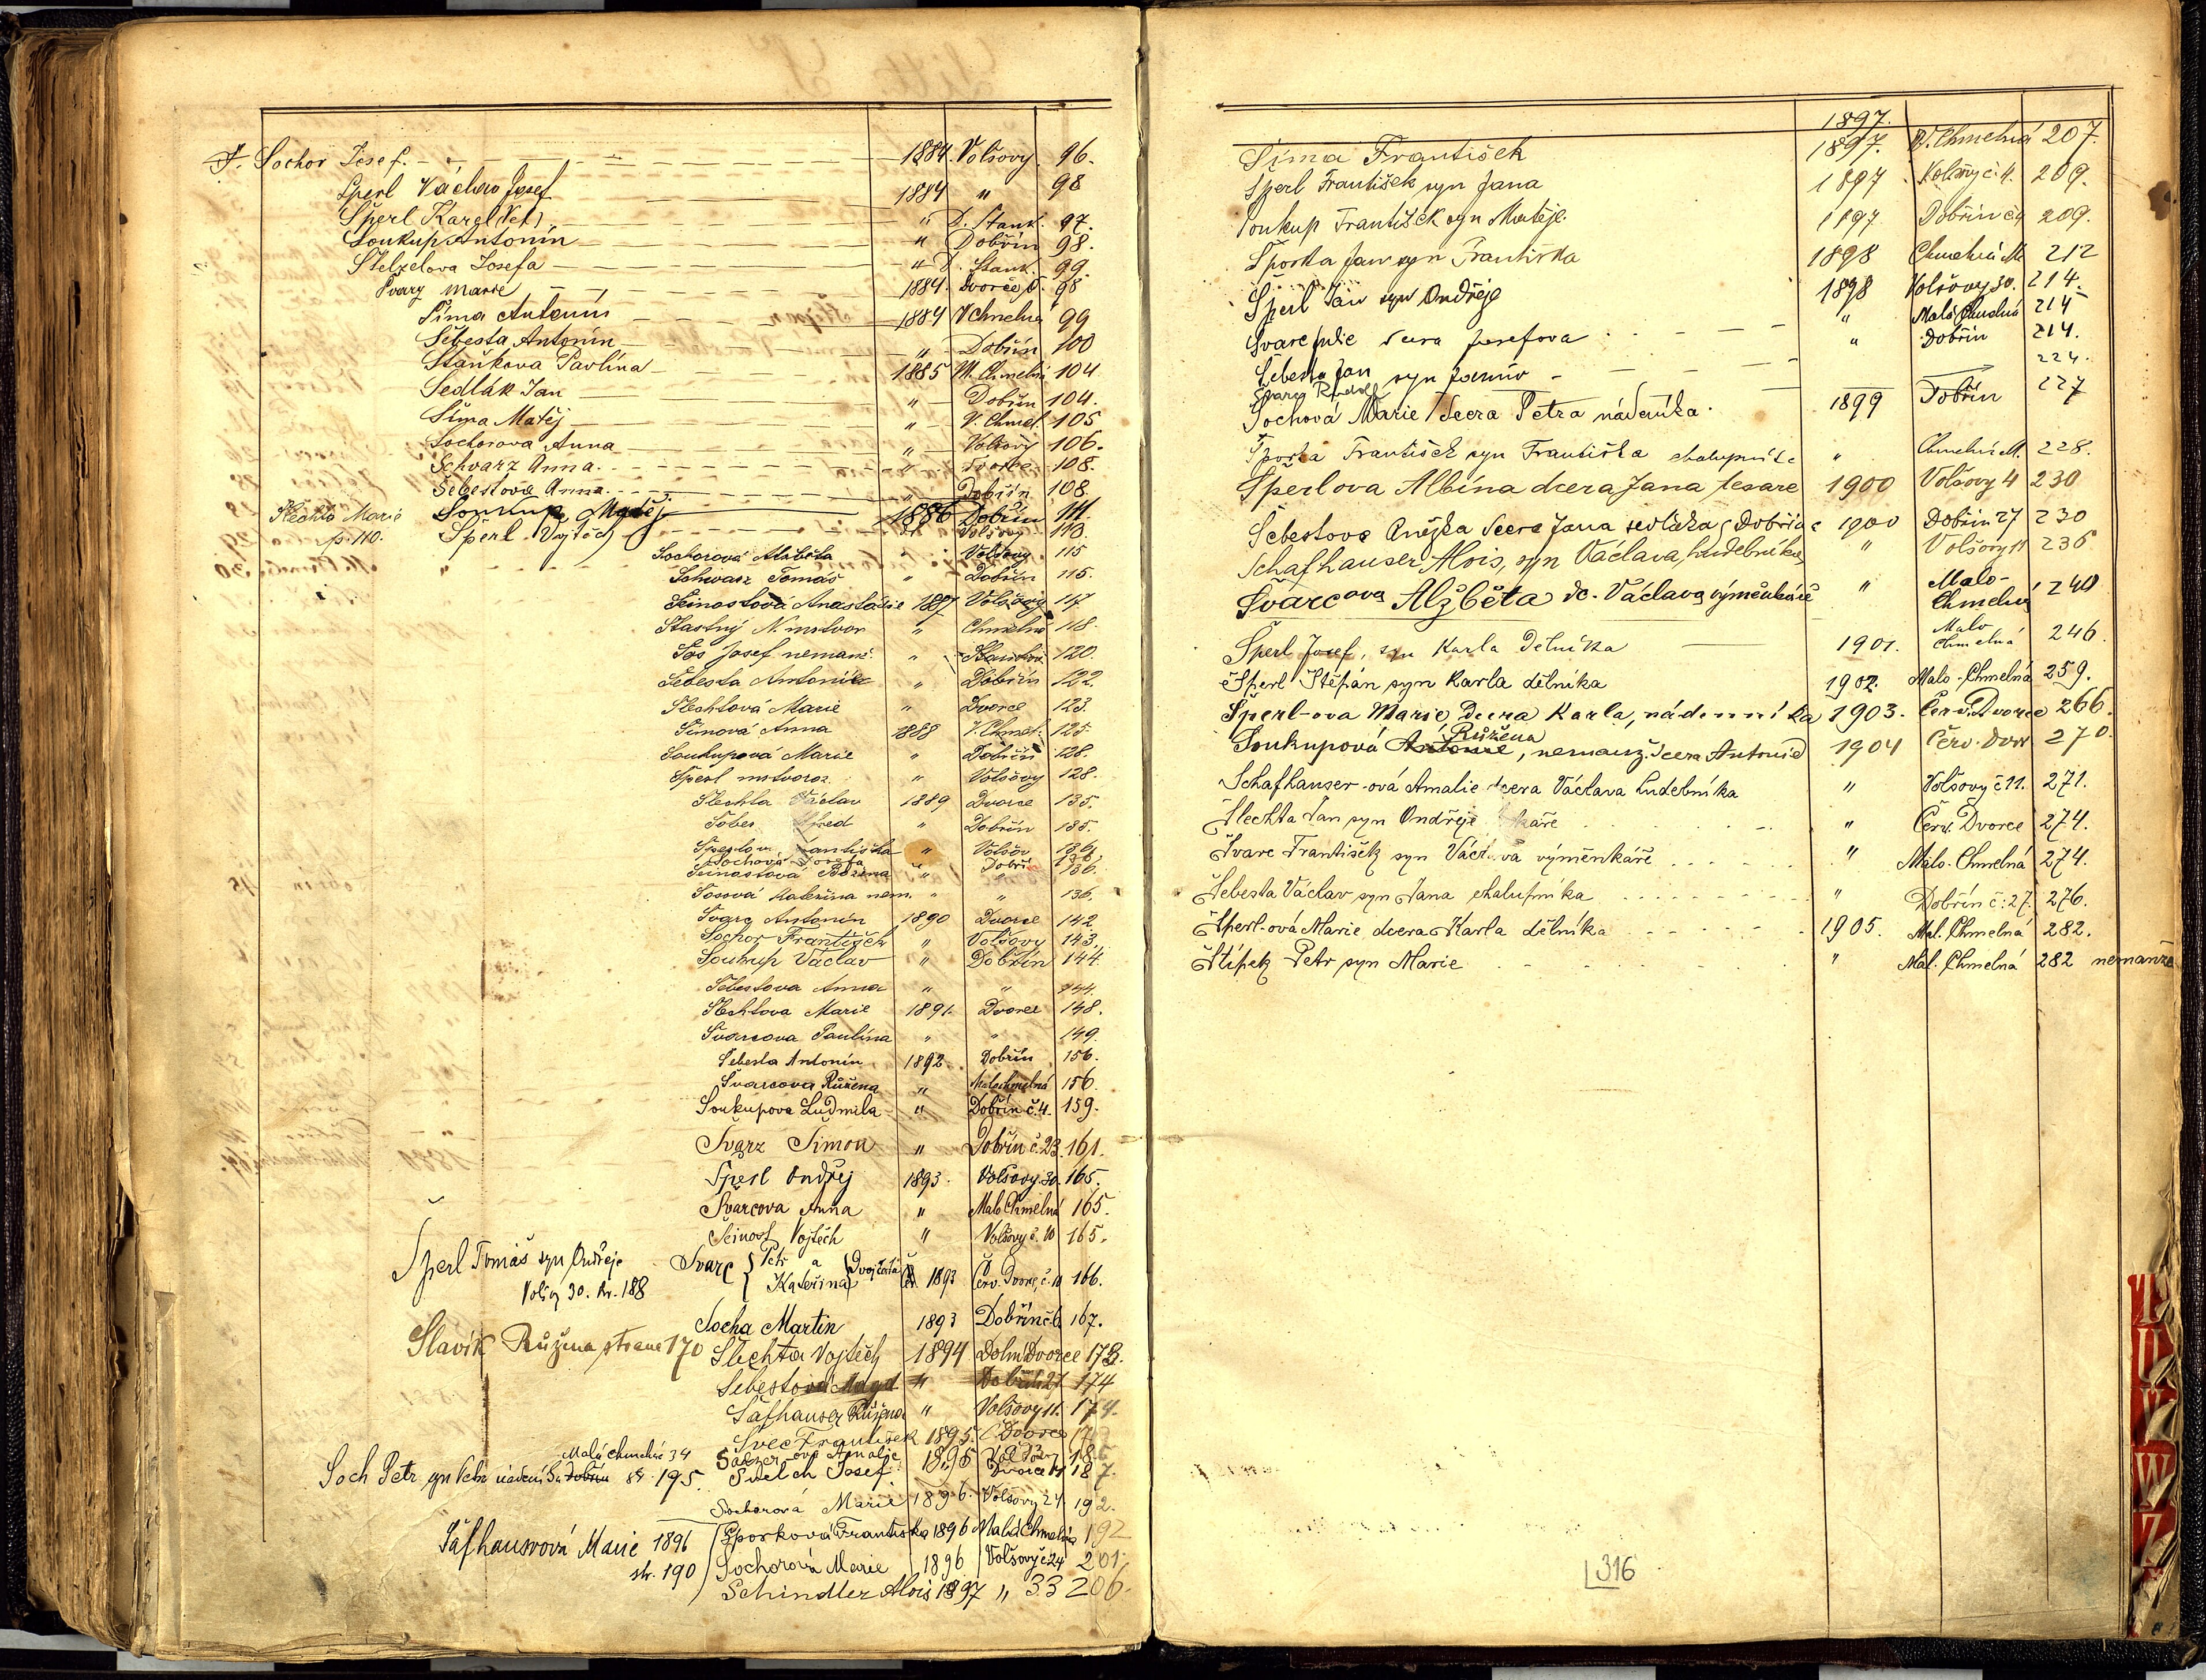 S. Sochor Josef. 1884. Volšovy. 96.
Šperl Václav Josef 1884 " 98
Šperl Karel " D. Stank. 97.
Soukup Antonín " Dobřín 98.
Stelzelova Josefa " D. Stank. 99.
Švarz Marie 1884. Dvorce 98
Šíma Antonín 1884 V Chmelná 99
Šebesta Antonín " Dobřín 100
Staňkova Pavlína 1885 M. Chmelná 104
Sedlák Jan " Dobřín 104.
Šíma Matěj " V. Chmel. 105
Sochorova Anna " Volšovy 106.
Schvarz Anna " Dvorce 108.
Šebestova Anna " Dobřín 108.
Šlechta Marie p. 110.
Soukup Matěj 1886 Dobřín 111.
Šperl Vojtěch " Volšovy 113.
Sochorová Alžběta " Volšovy 115
Schwarz Tomáš " Dobřín 115.
Šeinostová Anastázie 1887 Volšovy 117
Šťastný N. mrtvor " Chmelná 118.
Sos Josef nemanž. " 120.
Šebesta Antonín " Dobřín 122.
Šlechtová Marie " Dvorce 123.
Šímová Anna 1888 V. Chmel. 125.
Soukupová Marie " Dobřín 128.
Šperl mrtvoroz. " Volšovy 128.
Šlechta Václav 1889 Dvorce 135.
" Dobřín 135.
" Volšov 136
Sochová Dobř. 136
Šeinostová Božena " " 136.
Sosová Kateřina nem. " " 136.
Švarc Antonín 1890 Dvorce 142
Sochor František " Volšovy 143.
Soukup Václav " Dobřín 144.
Šebestova Anna " " 144.
Šlechtova Marie 1891. Dvorce 148.
Švarcova Paulina " " 149.
Šebesta Antonín 1892. Dobřín 156.
Švarcova Růžena " Malochmelná 156.
Soukupova Ludmila " Dobřín č.4. 159.
Švarz Šimon " Dobřín č.23. 161.
Šperl Ondřej 1893. Volšovy 30. 165.
Švarcova Anna " Malo Chmelná 165.
Šeinost Vojtěch " Volšovy č. 10 165.
Šperl Tomáš syn Ondřeje
Volšov 30. str. 188
Švarc { Petr a Kateřina } Dvojčata 1893 Červ. Dvorce č. 11 166.
Socha Martin 1893 Dobřín č.6 167.
Slavík Růžena strana 170
Šlechta Vojtěch 1894 Dolní Dvorce 173.
Šebestova Magd " Dobřín 27 174
Šafhauser Růžena " Volšovy 11. 174.
Švec František 1895. Dvorce
Malá Chmelná 34
Soch Petr syn Petra nádeníka Dobřín str. 195.
Amalie 1895
Josef Dvorce 187.
Sochorová Marie 1896. Volšovy 24. 192.
Šafhausrová Marie 1896
str. 190
Šporková Františka 1896 Malá Chmelná 192
Sochorová Marie 1896 Volšovy č 24 201.
Schindler Alois 1897 " 33 206.
1897.
Šíma František 1897. V. Chmelná 207.
Šperl František syn Jana 1897 Volšovy č. 4. 209.
Soukup František syn Matěje 1897 Dobřín č 4 209.
Šporka Jan syn Františka 1898 Chmelná M. 212
Šperl Jan syn Ondřeje 1898 Volšovy 30. 214.
Švarc Julie dcera Josefova " Malá Chmelná 214
Šebesta Jan syn Janův " Dobřín 214.
Švarc Rudolf 224.
Sochová Marie dcera Petra nádeníka. 1899 Dobřín 227
Šporka František syn Františka chalupníka " Chmelná M. 228.
Šperlova Albína dcera Jana tesaře 1900 Volšovy 4 230
Šebestova Anežka dcera Jana sedláka z Dobřína 1900 Dobřín 27 230
Schafhauser Alois, syn Václava, hudebníka, " Volšovy 11 236
Švarcova Alžběta dc. Václava výměnkáře " Malo-Chmelná 240
Šperl Josef, syn Karla dělníka 1901. Malo Chmelná 246.
Šperl Štěpán syn Karla dělníka 1902. Malo-Chmelná 259.
Šperl-ova Marie dcera Karla, nádenníka 1903. Červ. Dvorce 266.
Růžena
Soukupová Antonie, nemanž. dcera Antonie 1904 Červ. Dvor 270.
Schafhauser-ová Amalie dcera Václava hudebníka " Volšovy č 11. 271.
Šlechta Jan syn Ondřeje " Červ. Dvorce 274.
Švarc František syn Václava výměnkáře " Malo-Chmelná 274.
Šebesta Václav syn Jana chalupníka " Dobřín č. 27. 276.
Šperl-ová Marie dcera Karla dělníka 1905. Mal. Chmelná 282.
Štípek Petr syn Marie " Mal. Chmelná 282 nemanže
316